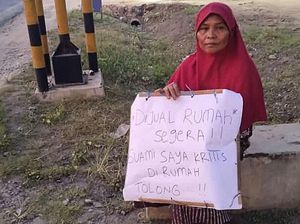 "DIJUAL RUMAH"
SEGERA!!
SUAMI SAYA KRITIS
DI RUMAH
TOLONG !!